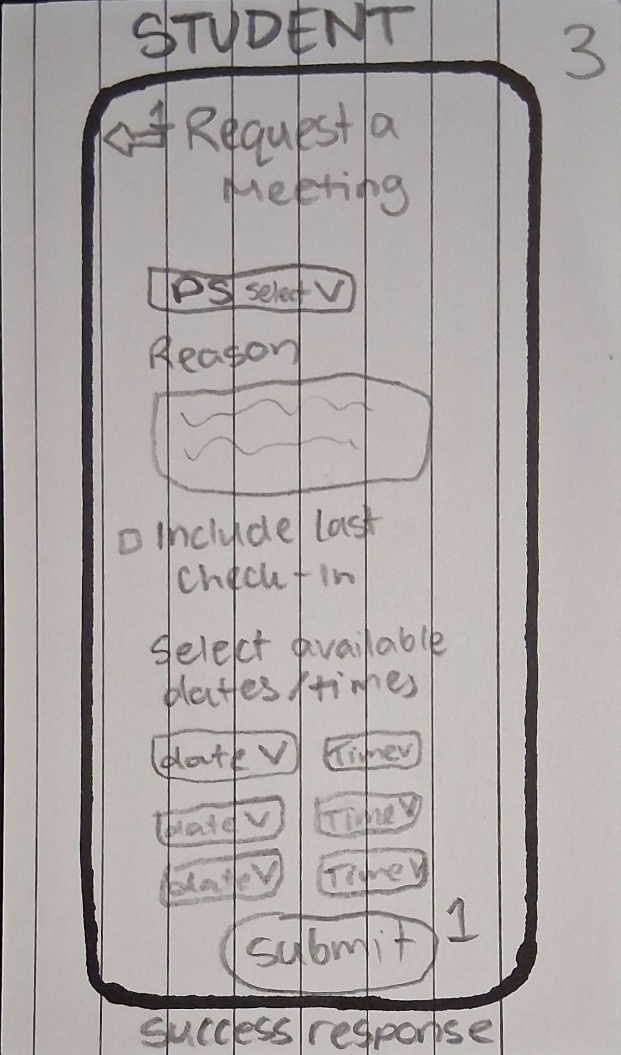 STUDENT
3
1
Request a
Meeting
PS select V
Reason
Include last
check-in
Select available
dates/times
date V Time V
date V Time V
date V Time V
submit 1
success response